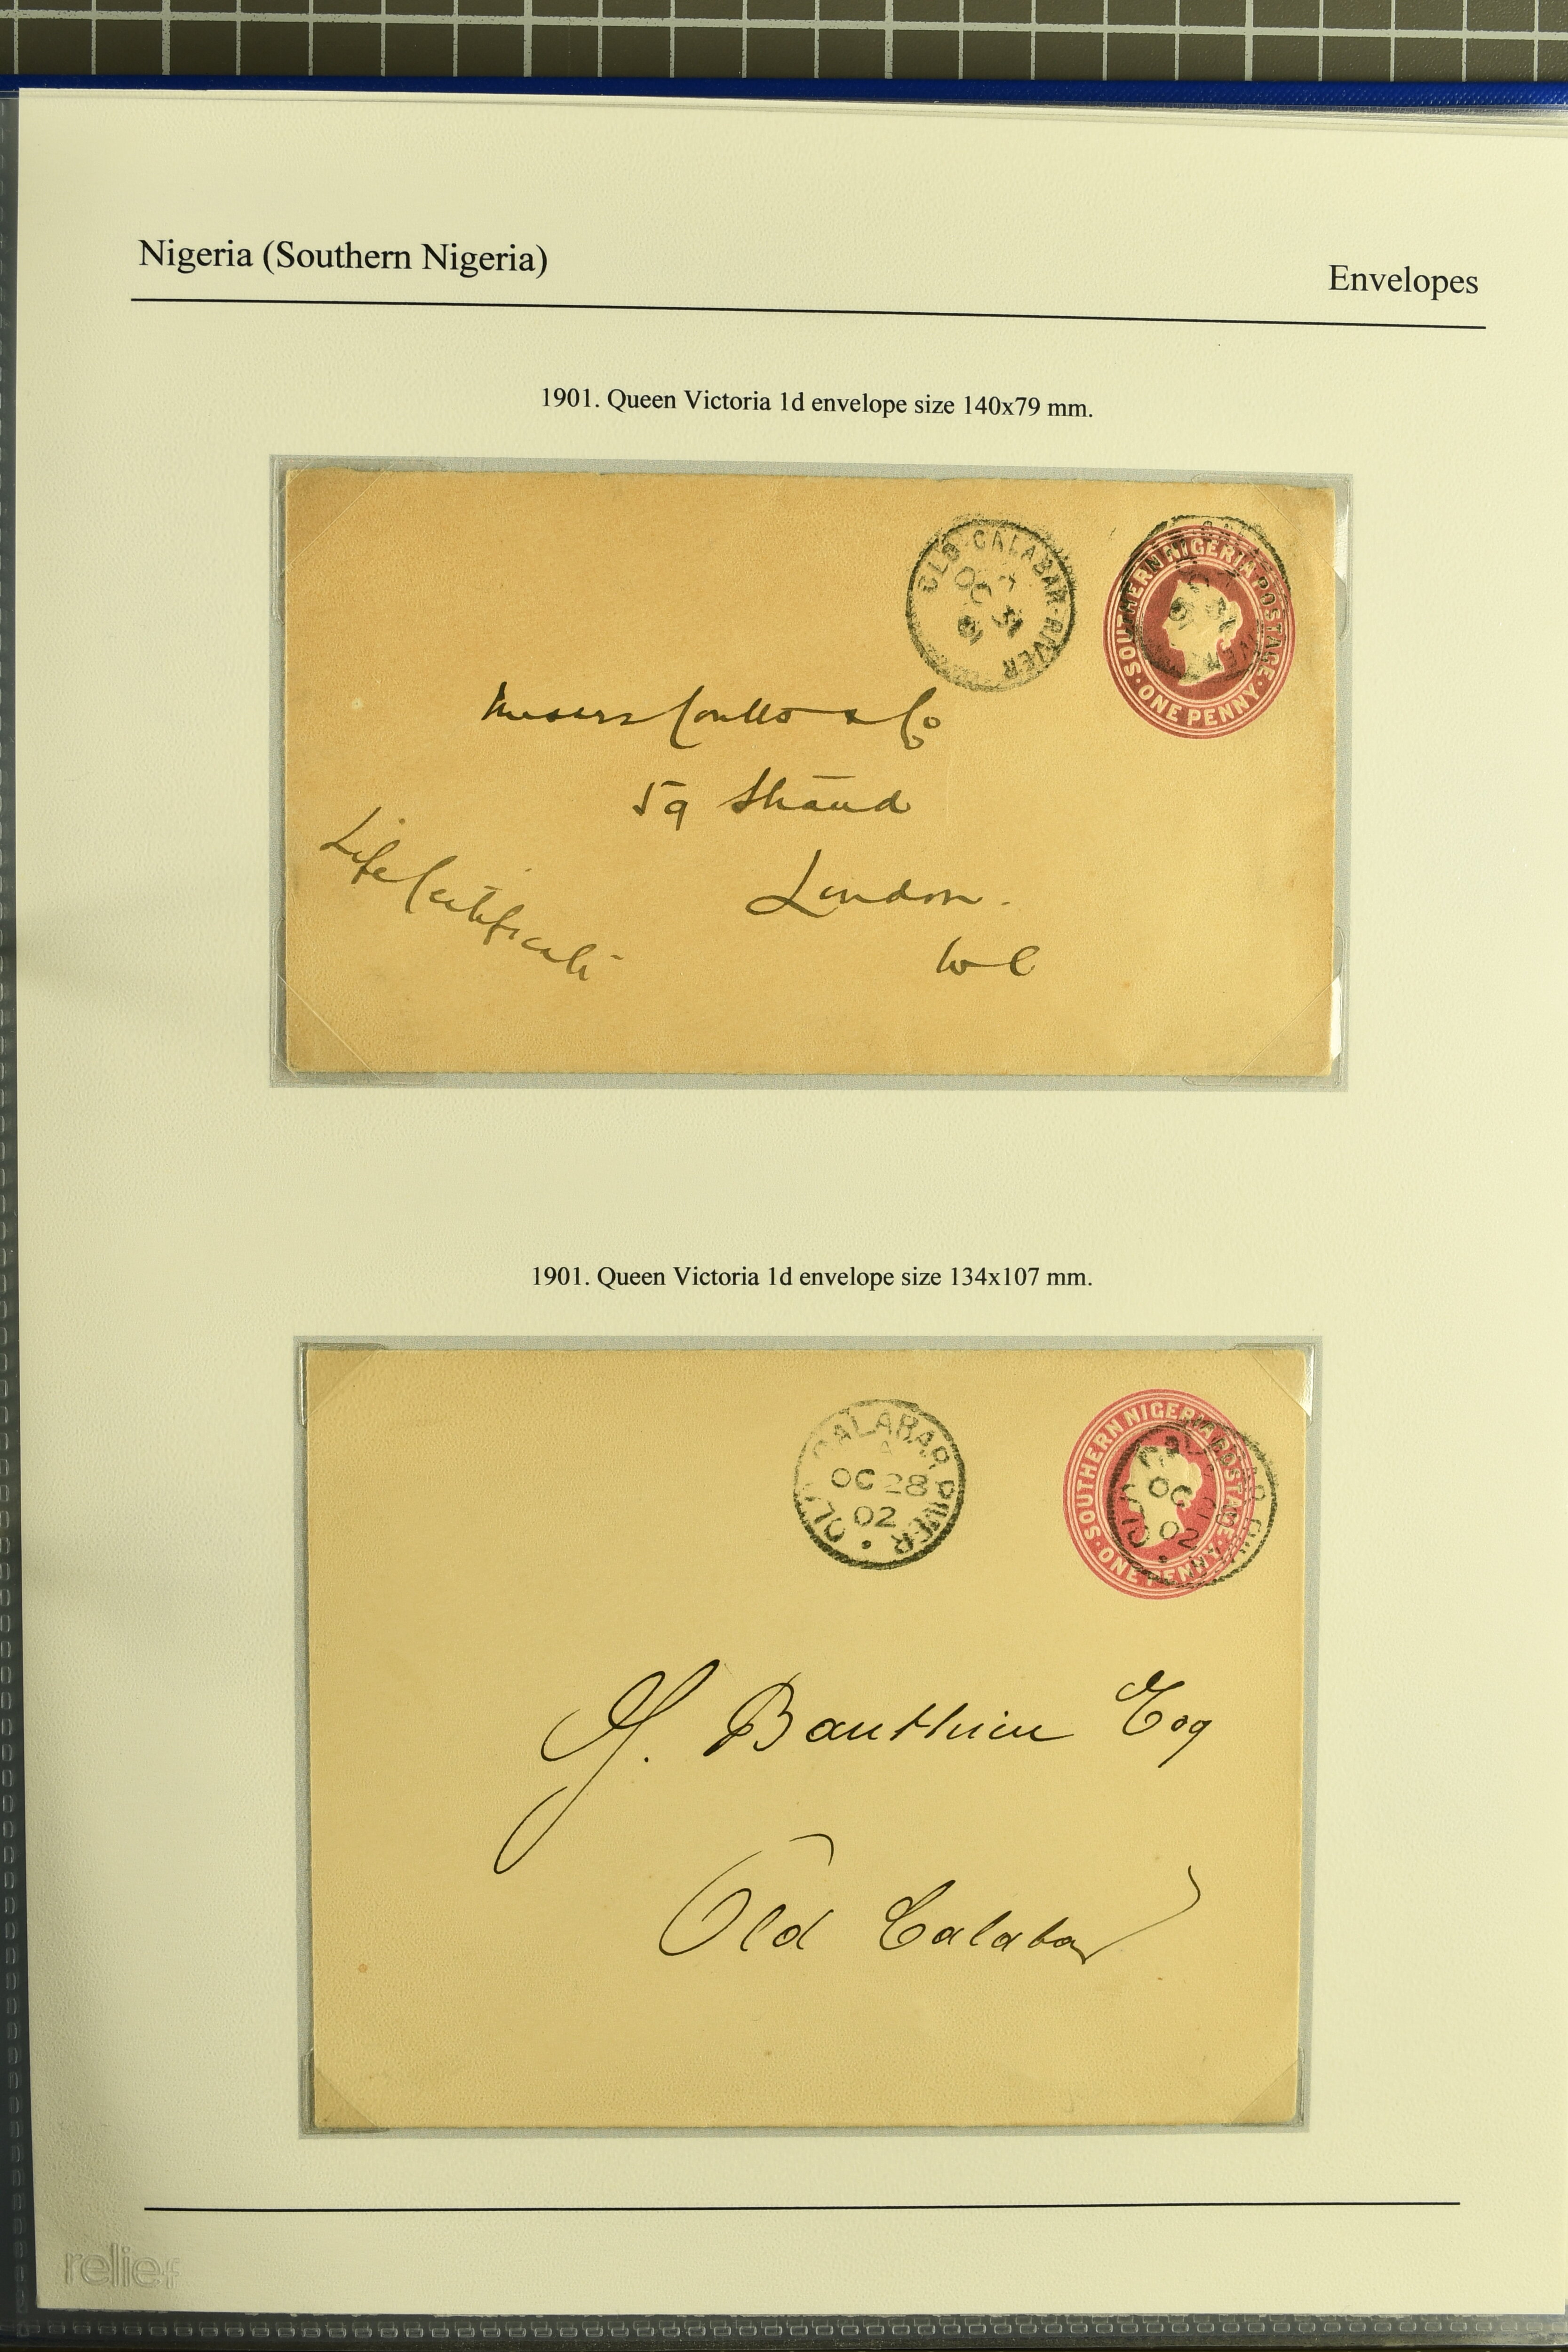 Nigeria (Southern Nigeria)
Envelopes
1901. Queen Victoria 1d envelope size 140x79 mm.
OLD CALABAR RIVER
OC
01
SOUTHERN NIGERIA POSTAGE
· ONE PENNY ·
Messrs Coutts & Co
59 Strand
London.
WC
Life Certificate
1901. Queen Victoria 1d envelope size 134x107 mm.
OLD CALABAR RIVER
A
OC 28
02
SOUTHERN NIGERIA POSTAGE
· ONE PENNY ·
OC
02
Bauthien Esq
Old Calabar
relief